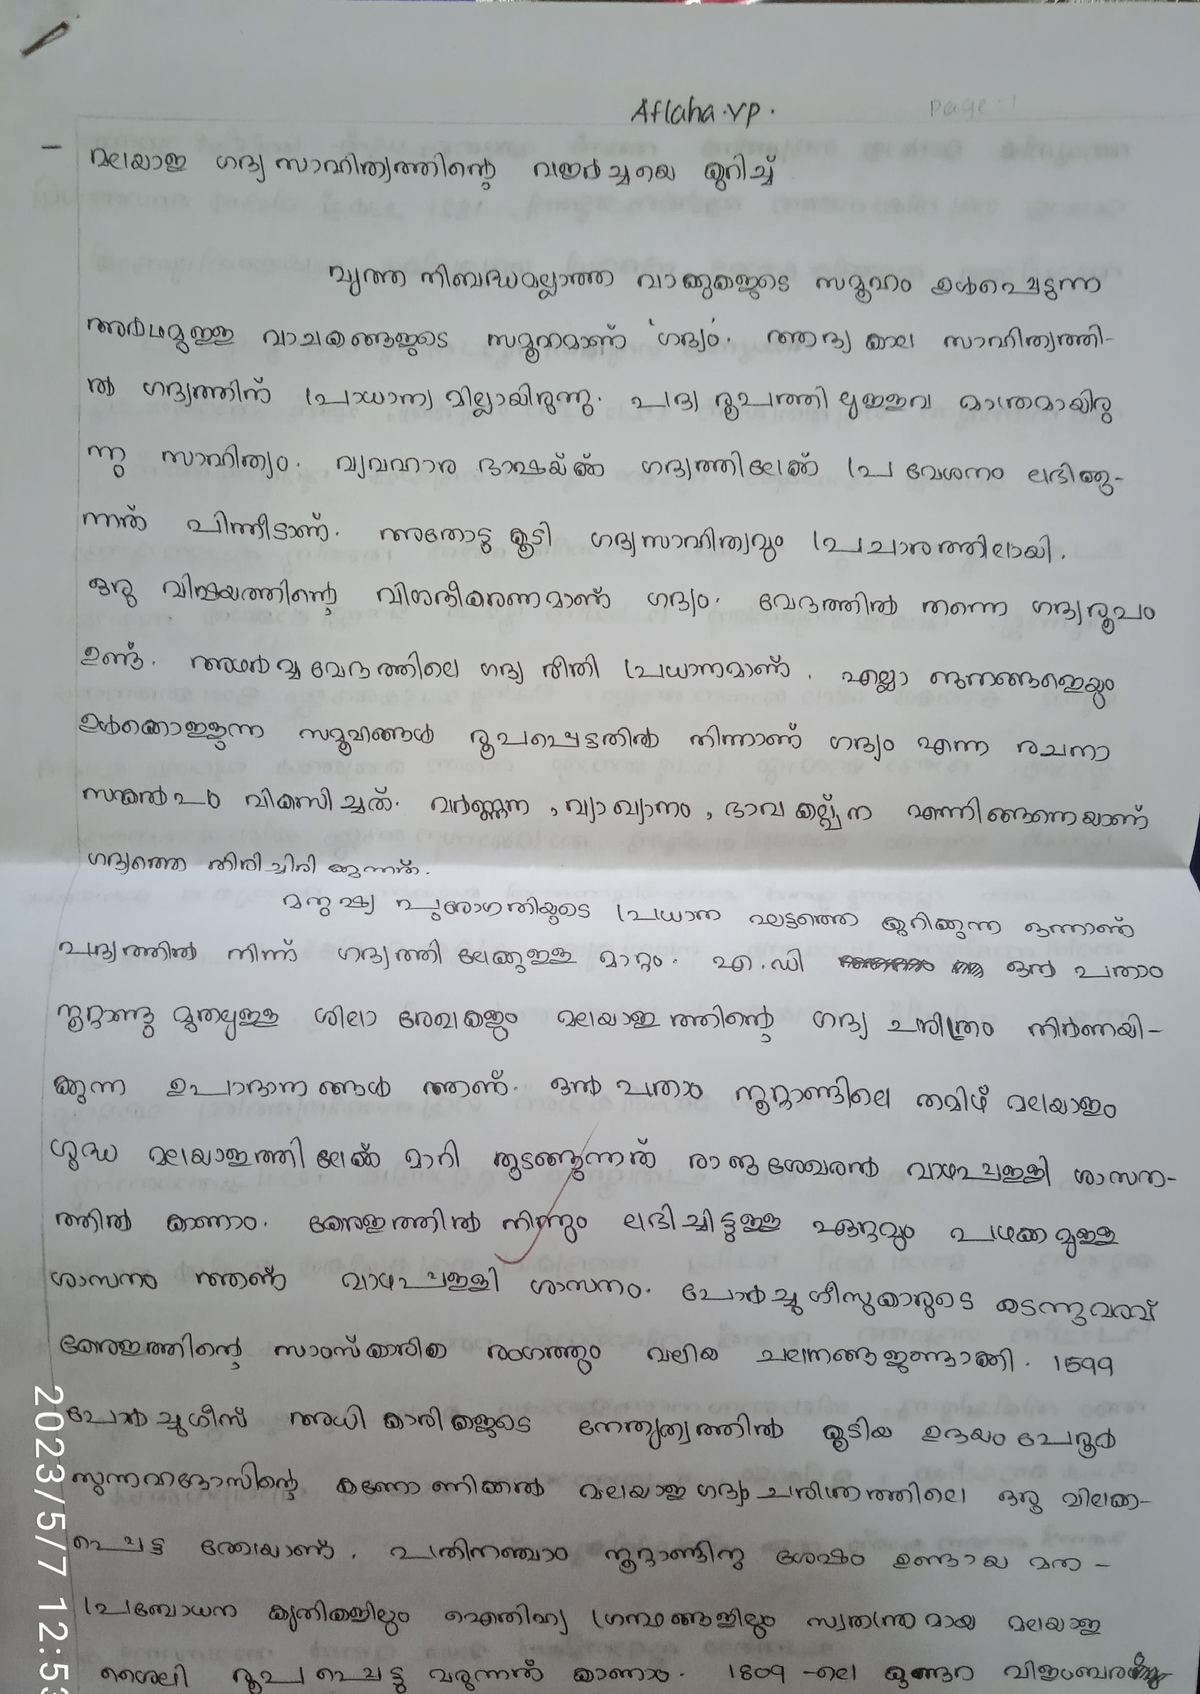 Aflaha.vp.
page:1
- മലയാള ഗദ്യ സാഹിത്യത്തിന്റെ വളർച്ചയെ കുറിച്ച്
വൃത്ത നിബദ്ധമല്ലാത്ത വാക്കുകളുടെ സമൂഹം ഉൾപ്പെടുന്ന
അർഥമുള്ള വാചകങ്ങളുടെ സമൂഹമാണ് 'ഗദ്യം'. ആദ്യ കാല സാഹിത്യത്തി-
ൽ ഗദ്യത്തിന് പ്രാധാന്യ മില്ലായിരുന്നു. പദ്യ രൂപത്തി ലുള്ളവ മാത്രമായിരു
ന്നു സാഹിത്യം. വ്യവഹാര ഭാഷയ്ക്ക് ഗദ്യത്തിലേക്ക് പ്രവേശനം ലഭിക്കു-
ന്നത് പിന്നീടാണ്. അതോടു കൂടി ഗദ്യസാഹിത്യവും പ്രചാരത്തിലായി.
ഒരു വിഷയത്തിന്റെ വിശദീകരണമാണ് ഗദ്യം. വേദത്തിൽ തന്നെ ഗദ്യരൂപം
ഉണ്ട്. അഥർവ്വ വേദത്തിലെ ഗദ്യ രീതി പ്രധാനമാണ്. എല്ലാ ജനങ്ങളെയും
ഉൾക്കൊള്ളുന്ന സമൂഹങ്ങൾ രൂപപ്പെട്ടതിൽ നിന്നാണ് ഗദ്യം എന്ന രചനാ
സങ്കൽപം വികസിച്ചത്. വർണ്ണന, വ്യാഖ്യാനം, ഭാവ കല്പന എന്നിങ്ങനെയാണ്
ഗദ്യത്തെ തിരിച്ചിരി ക്കുന്നത്.
മനുഷ്യ പുരോഗതിയുടെ പ്രധാന ഘട്ടത്തെ കുറിക്കുന്ന ഒന്നാണ്
പദ്യത്തിൽ നിന്ന് ഗദ്യത്തി ലേക്കുള്ള മാറ്റം. എ.ഡി ഒൻ പതാം
നൂറ്റാണ്ടു മുതലുള്ള ശിലാ രേഖകളും മലയാള ത്തിന്റെ ഗദ്യ ചരിത്രം നിർണയി-
ക്കുന്ന ഉപാദാന ങ്ങൾ ആണ്. ഒൻ പതാം നൂറ്റാണ്ടിലെ തമിഴ് മലയാളം
ശുദ്ധ മലയാളത്തി ലേക്ക് മാറി തുടങ്ങുന്നത് രാജശേഖരൻ വാഴപ്പള്ളി ശാസന-
ത്തിൽ കാണാം. കേരളത്തിൽ നിന്നും ലഭിച്ചിട്ടുള്ള ഏറ്റവും പഴക്കമുള്ള
ശാസനം ആണ് വാഴപ്പള്ളി ശാസനം. പോർച്ചുഗീസുകാരുടെ കടന്നുവരവ്
കേരളത്തിന്റെ സാംസ്കാരിക രംഗത്തും വലിയ ചലനങ്ങളുണ്ടാക്കി. 1599
പോർച്ചുഗീസ് അധി കാരികളുടെ നേതൃത്വത്തിൽ കൂടിയ ഉദയം പേരൂർ
സുന്നഹദോസിന്റെ കണോ ണിക്കൽ മലയാള ഗദ്യ ചരിത്രത്തിലെ ഒരു വിലക്ക-
പ്പെട്ട രേഖയാണ്. പതിനഞ്ചാം നൂറ്റാണ്ടിനു ശേഷം ഉണ്ടായ മത-
പ്രബോധന കൃതികളിലും ഐതിഹ്യ ഗ്രന്ഥങ്ങളിലും സ്വതന്ത്രമായ മലയാള
ശൈലി രൂപ പ്പെട്ടു വരുന്നത് കാണാം. 1809 -ലെ കുണ്ടറ വിളംബര
2023/5/7 12:53